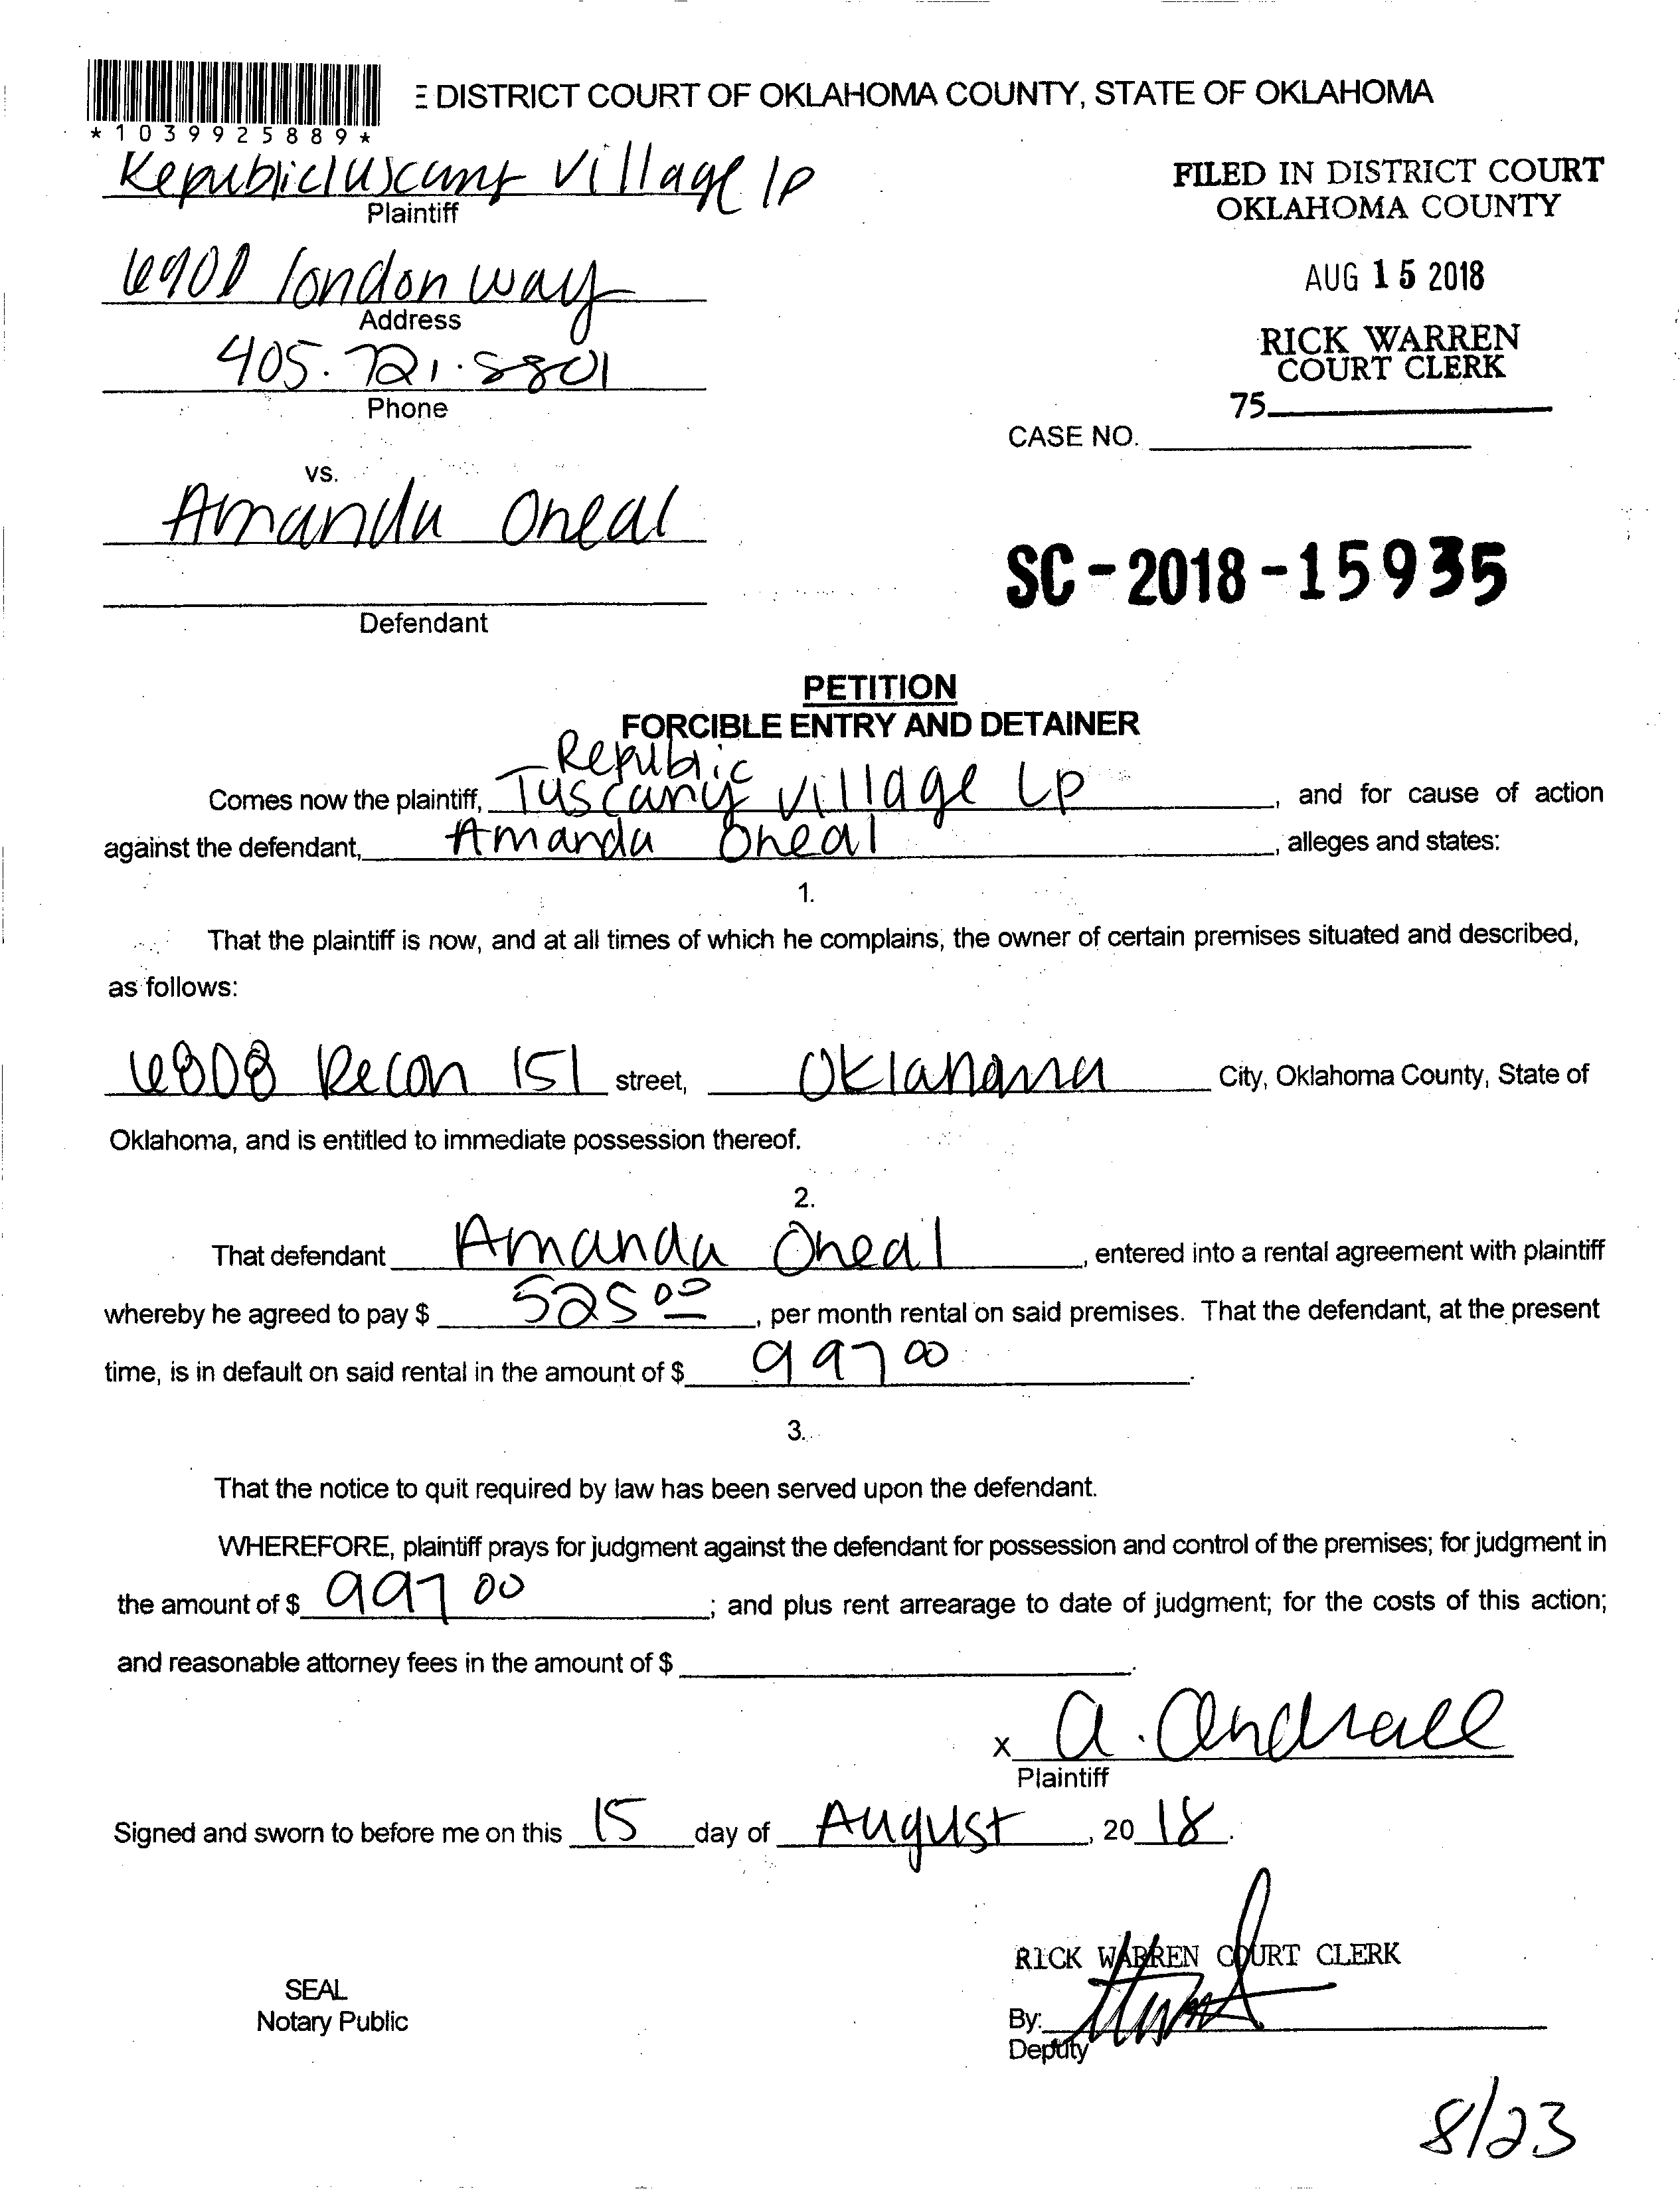 DISTRICT COURT OF OKLAHOMA COUNTY, STATE OF OKLAHOMA
*1039925889*
Republic Tuscany Village lp
Plaintiff
FILED IN DISTRICT COURT
OKLAHOMA COUNTY
6900 london way
Address
AUG 15 2018
405.721.5801
Phone
RICK WARREN
COURT CLERK
75
CASE NO.
vs.
Amanda Oneal
SC-2018-15935
Defendant
PETITION
FORCIBLE ENTRY AND DETAINER
Republic
Comes now the plaintiff, Tuscany Village LP, and for cause of action
against the defendant, Amanda Oneal, alleges and states:
1.
That the plaintiff is now, and at all times of which he complains, the owner of certain premises situated and described,
as follows:
6808 Recon 151 street, Oklahoma City, Oklahoma County, State of
Oklahoma, and is entitled to immediate possession thereof.
2.
That defendant Amanda Oneal, entered into a rental agreement with plaintiff
whereby he agreed to pay $ 525 00, per month rental on said premises. That the defendant, at the present
time, is in default on said rental in the amount of $ 997 00.
3.
That the notice to quit required by law has been served upon the defendant.
WHEREFORE, plaintiff prays for judgment against the defendant for possession and control of the premises; for judgment in
the amount of $ 997 00; and plus rent arrearage to date of judgment; for the costs of this action;
and reasonable attorney fees in the amount of $
x a. Andrall
Plaintiff
Signed and sworn to before me on this 15 day of August, 2018.
RICK WARREN COURT CLERK
SEAL
Notary Public
By:
Deputy
8/23